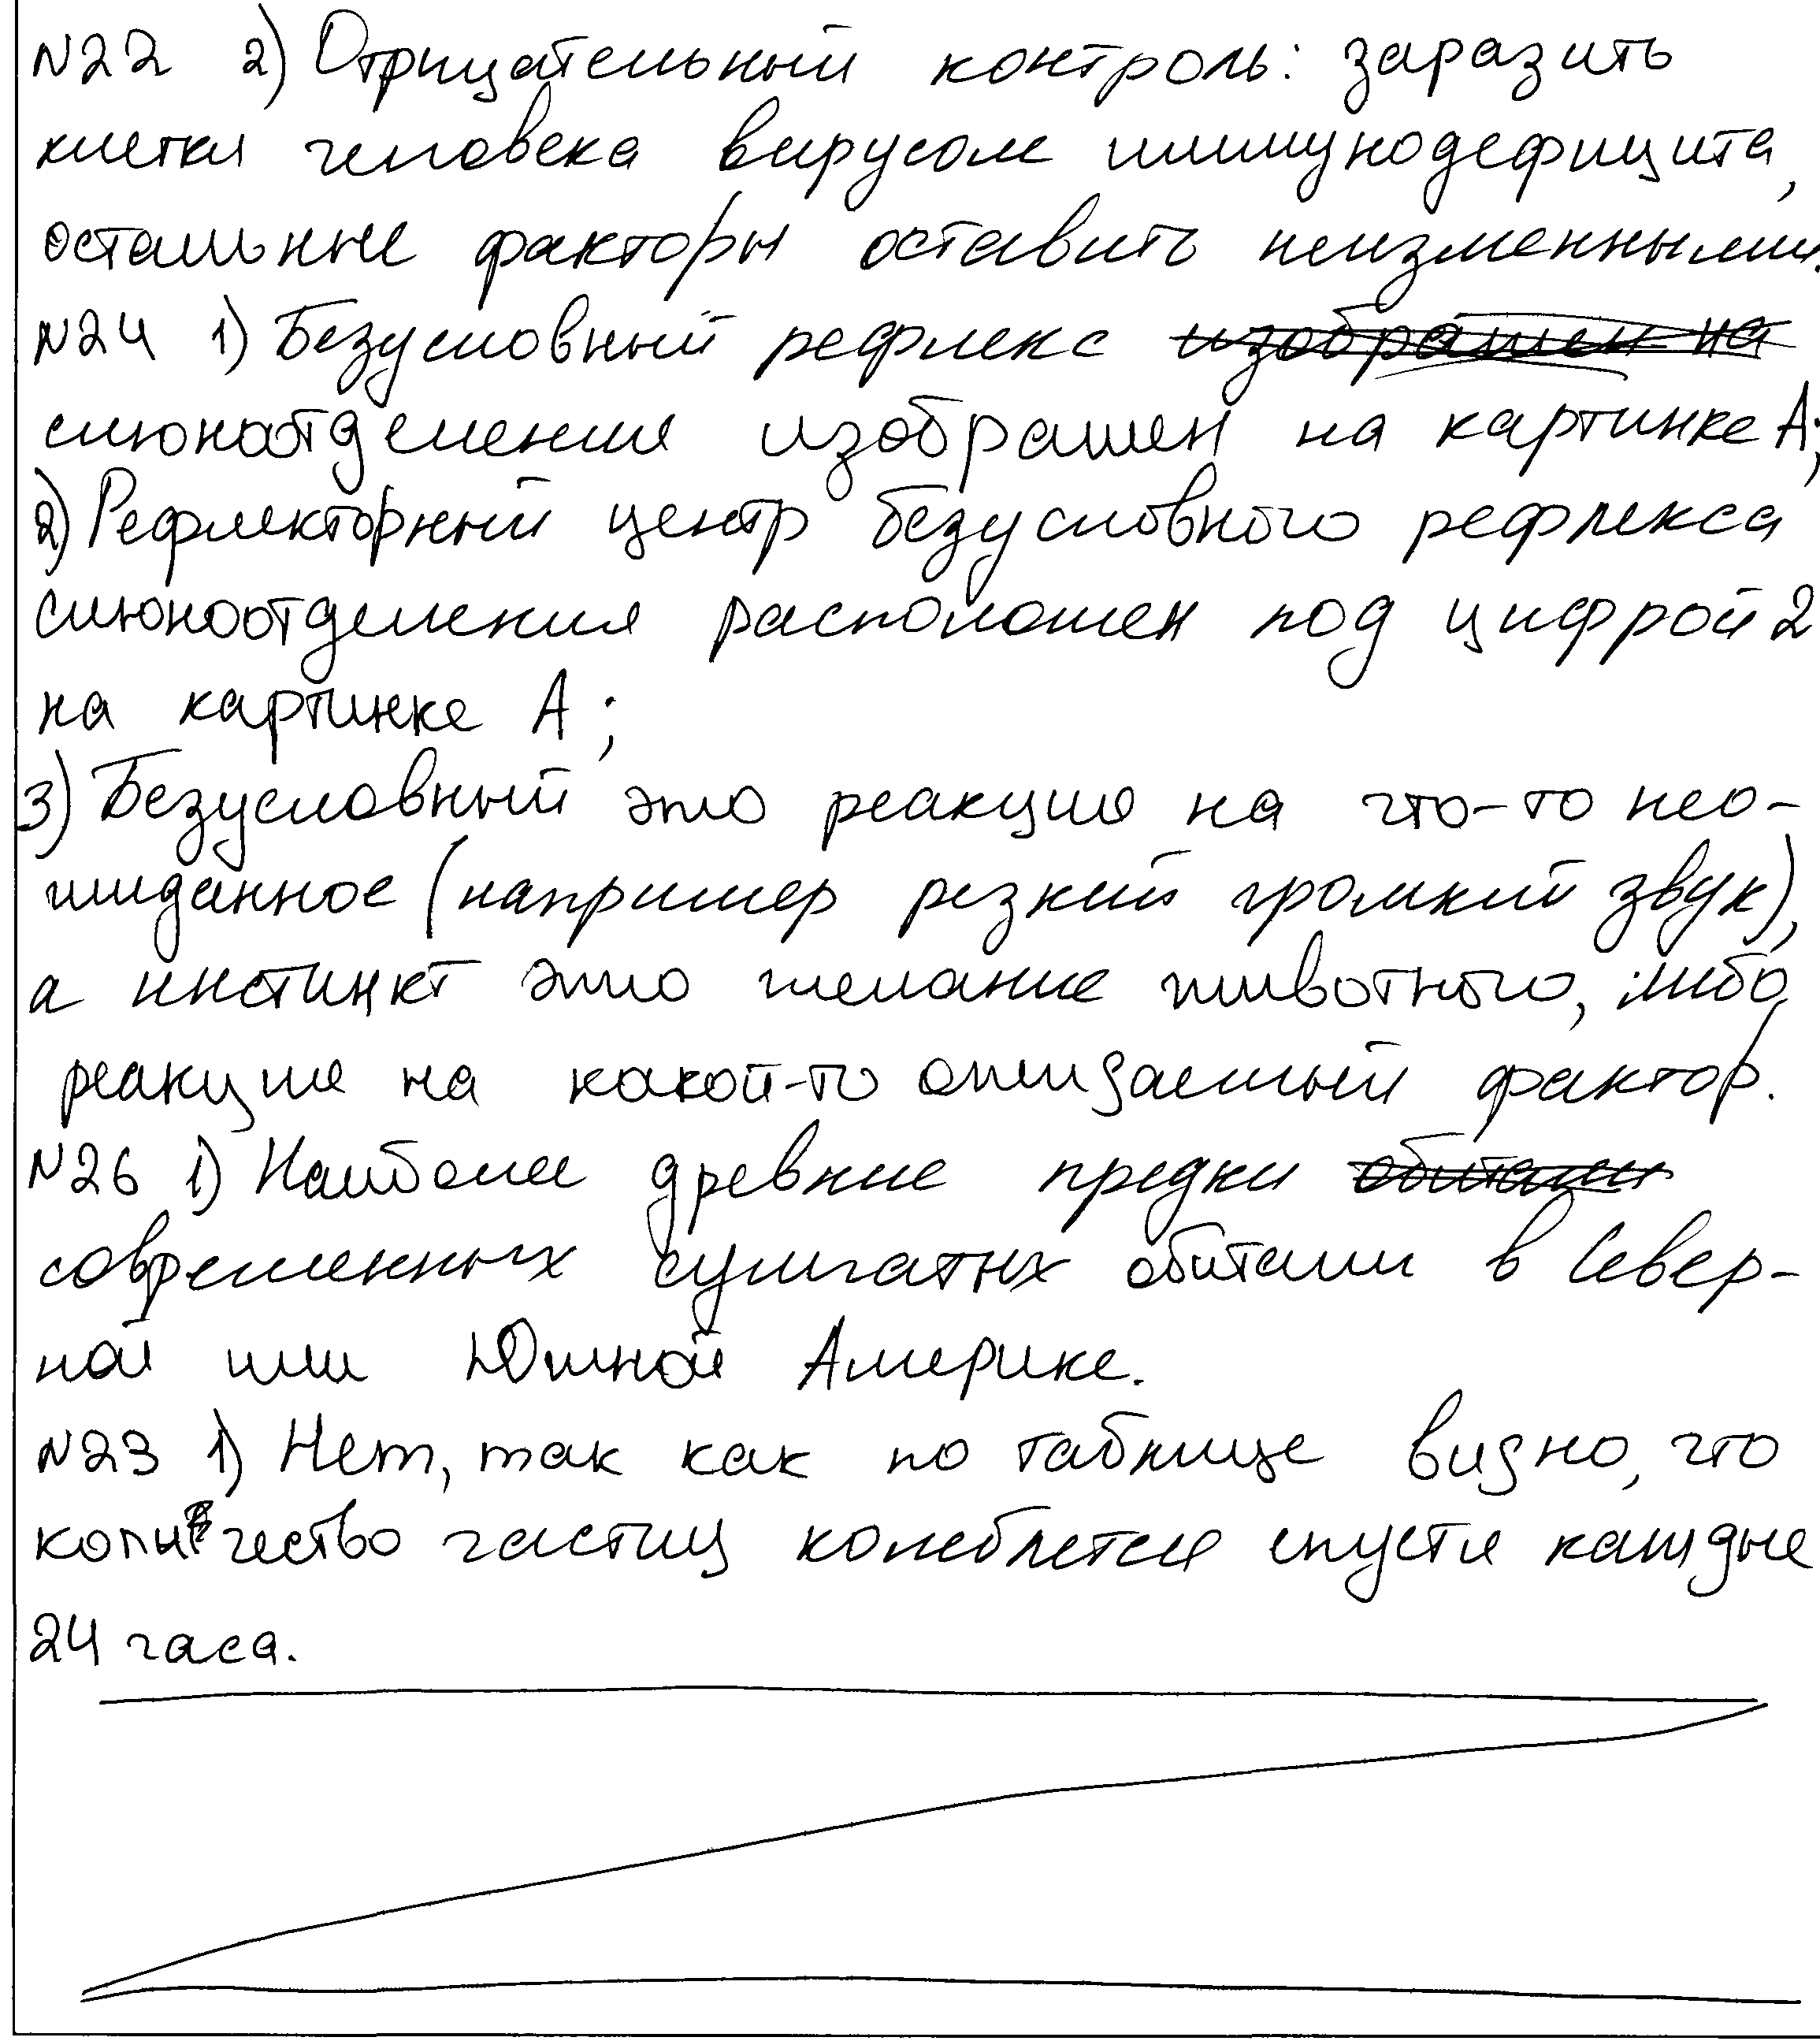 N22 2) Отрицательный контроль: заразить
клетки человека вирусом иммунодефицита,
остальные факторы оставить неизменными.
N24 1) Безусловный рефлекс изображен на
слюноотделения изображен на картинке А;
2) Рефлекторный центр безусловного рефлекса
слюноотделения расположен под цифрой 2
на картинке А;
3) Безусловный это реакция на что-то нео-
жиданное (например резкий громкий звук),
а инстинкт это желание животного, либо
реакция на какой-то ожидаемый фактор.
N26 1) Наиболее древние предки обитали
современных сумчатых обитали в Север-
ной или Южной Америке.
N23 1) Нет, так как по таблице видно, что
количество частиц колеблется спустя каждые
24 часа.